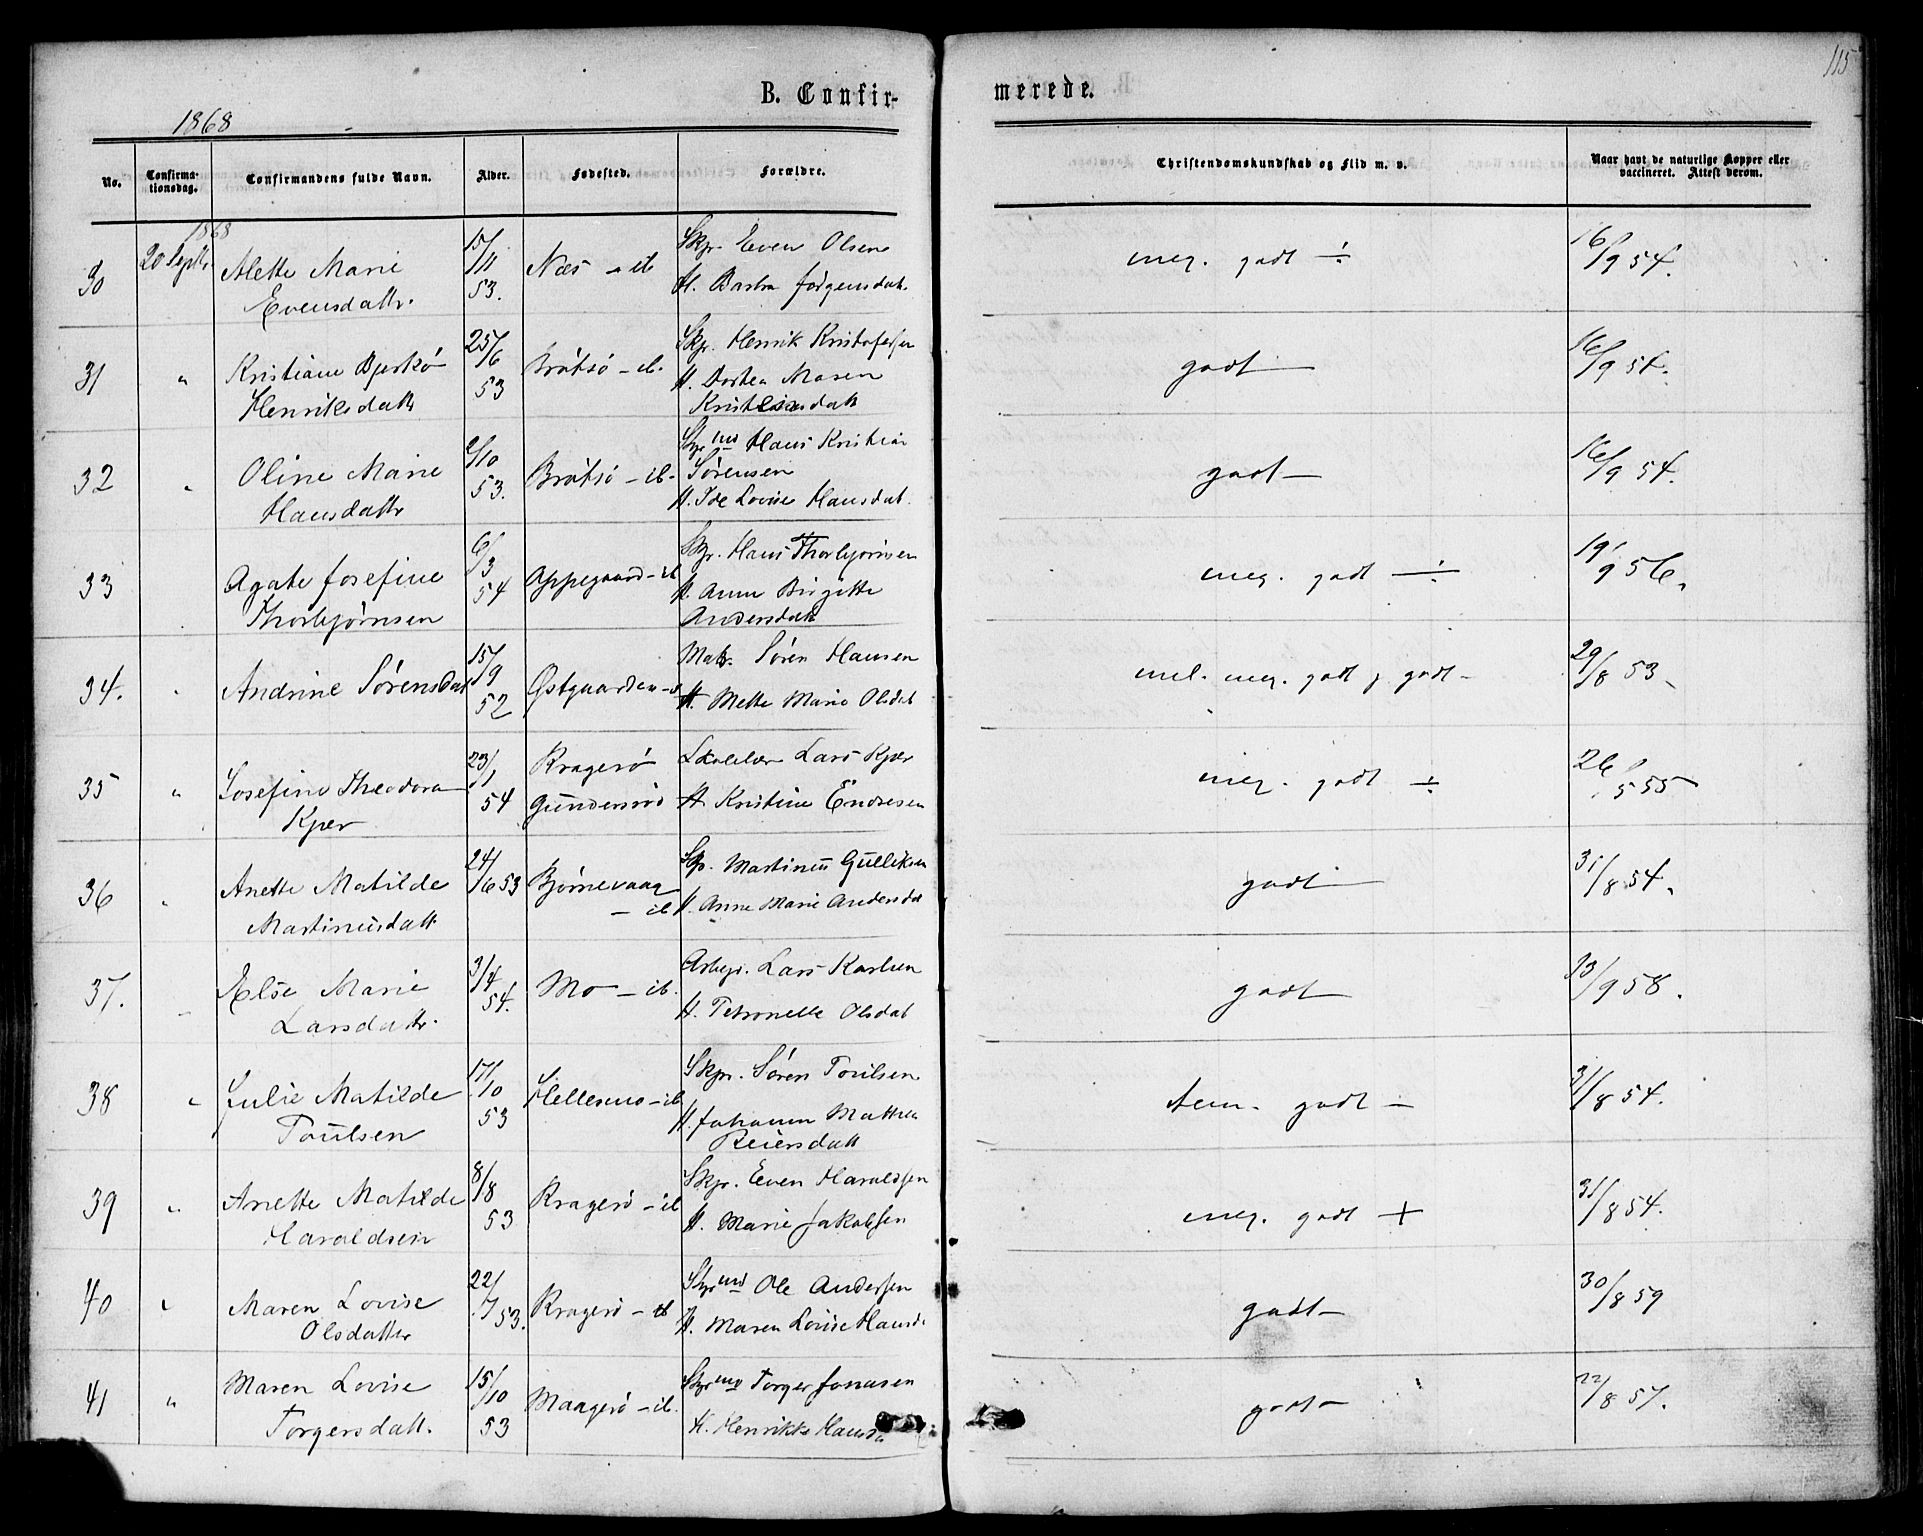 115
B. Confir-
merede.
1868
No.
Confirma-
tionsdag.
Confirmandens fulde Navn.
Alder.
Fødested.
Forældre.
Christendomskundskab og Flid m. v.
Naar havt de naturlige Kopper eller
vaccineret. Attest derom.
1868
30 20 Septbr Alette Marie Evensdattr. 15/11 53. Næs - ib Skpr. Even Olsen H. Barbra Jørgensdat. meg. godt ÷ 16/9 54.
31 " Kristiane Bjerkø Henriksdattr 25/6 53 Bråtsø - ib. Skpr. Henrik Kristofersen H. Dortea Maren Kristensdatt godt - 16/9 54.
32 " Oline Marie Hansdattr /10 53. Bråtsø - ib. Skprmd Hans Kristian Sørensen H. Ide Lovise Hansdat. godt - 16/9 54.
33 Agate Josefine Thorbjørnsen 6/3 54 Oppegaard - ib Skpr. Hans Thorbjørnsen H. Anne Birgitte Andersdatt meg. godt ÷ 19/9 56.
34. " Andrine Sørensdat 15/9 52 Østgaarden - ib Matr. Søren Hansen H. Mette Marie Olsdat mel. meg. godt g godt - 29/8 53.
35 " Josefine Theodora Kjær 23/1 54 Kragerø Gundersrød Skolelær Lars Kjær H Kristine Endresen meg. godt ÷ 26/5 55
36 " Anette Matilde Martinusdatt 24/6 53 Bjørnevaag - ib Sk. Martinus Gulliksen H. Anne Marie Andersdat godt - 31/8 54.
37. " Else Marie Larsdattr. 3/4 54. Mo - ib. Arbejr. Lars Karlsen H. Petronelle Olsdat godt - 13/9 58.
38 " Julie Matilde Poulsen 17/10 53 Hellesmo - ib Skpr. Søren Poulsen H. Johanne Mathea Reiersdatt tem. godt - 31/8 54.
39 " Anette Matilde Haraldsen 8/8 53 Kragerø - ib Skpr. Even Haraldsen H. Marie Jakobsen meg. godt + 31/8 54.
40 " Maren Lovise Olsdatter 22/7 53. Kragerø - ib Skprmd Ole Andersen H. Maren Lovise Hansd. godt - 30/8 59
41 " Maren Lovise Torgersdatt. 15/10 53 Maagerø - ib. Skprmd Torger Jonasen H. Henrikke Hansda godt - 22/8 57.